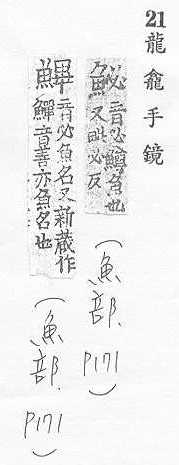 21 龍龕手鏡
音必鱒魚也
又毗必反
(魚部. P171)
音必魚名又新蔵作
鱓音善亦魚名也
(魚部. P171)